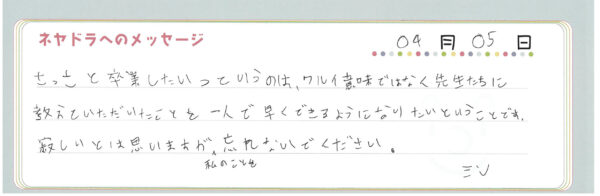 ネヤドラへのメッセージ 04月05日
さっさと卒業したいっていうのは、ワルイ意味ではなく先生たちに
教えていただいたことを一人で早くできるようになりたいということです。
寂しいとは思いますが、忘れないでください。
私のことを
ミソ